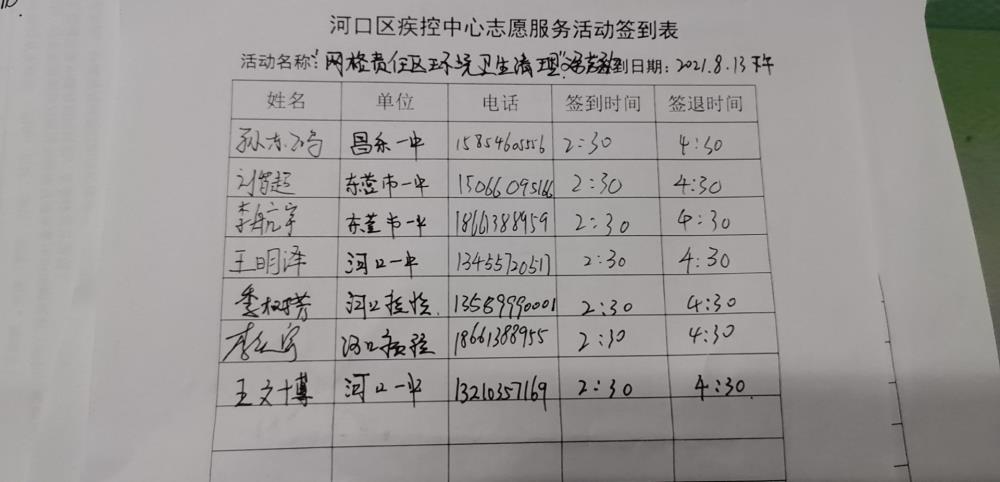 河口区疾控中心志愿服务活动签到表
活动名称:网格责任区环境卫生清理 到日期:2021.8.13下午
姓名 单位 电话 签到时间 签退时间
孙东 昌乐一中 15854605556 2:30 4:30
刘智超 东营市一中 15066095166 2:30 4:30
李航宇 东营市一中 18661388959 2:30 4:30
王明泽 河口一中 13455720517 2:30 4:30
季树芳 河口 13589990001 2:30 4:30
李 河口 18661388955 2:30 4:30
王文博 河口一中 13210357169 2:30 4:30